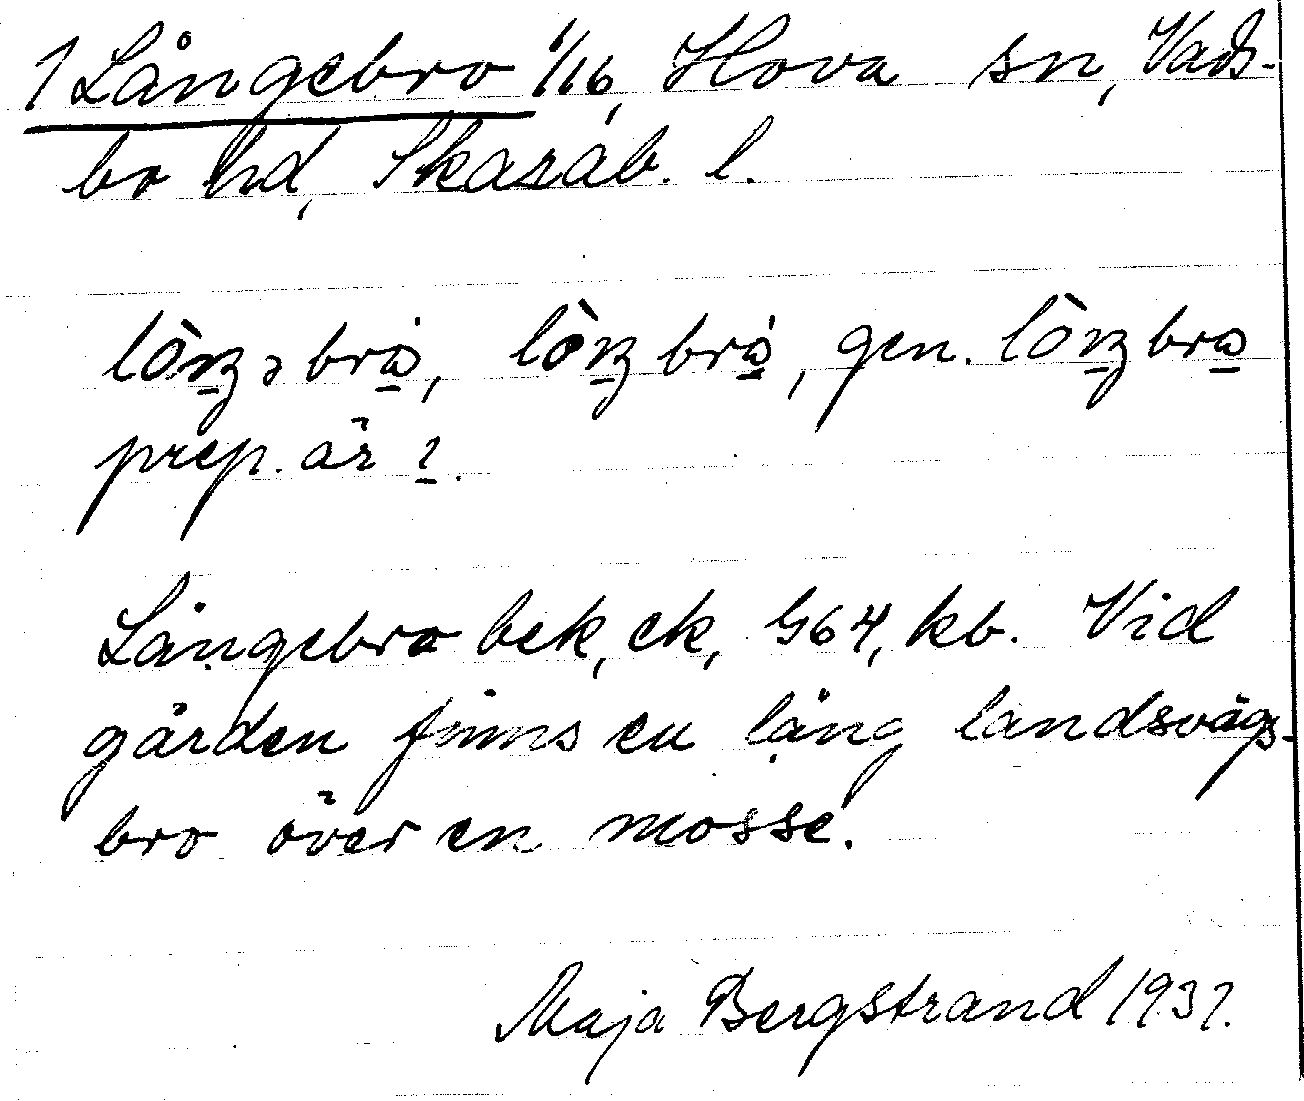 1 Långebro 1/16, Hova sn, Vads-
bo hd, Skarab. l.
lòŋəbrȯ, lòŋbrȯ, gen. lòŋbro
prep. är ı.
Långebro bek, ek, G64, kb. Vid
gården finns en lång landsvägs-
bro över en mosse.
Maja Bergstrand 1937.